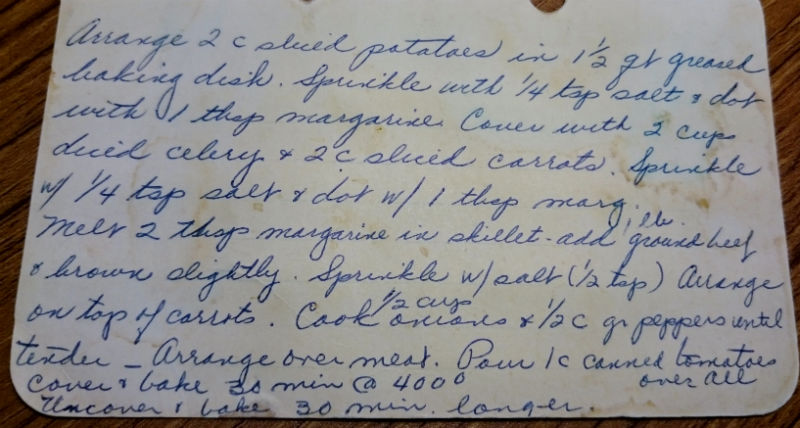 Arrange 2 c sliced potatoes in 1 1/2 qt greased
baking dish. Sprinkle with 1/4 tsp salt & dot
with 1 tbsp margarine. Cover with 2 cups
diced celery & 2 c sliced carrots. Sprinkle
w/ 1/4 tsp salt & dot w/ 1 tbsp marg.
Melt 2 tbsp margarine in skillet - add 1 lb. ground beef
& brown slightly. Sprinkle w/ salt (1/2 tsp) Arrange
on top of carrots. Cook 1/2 cup onions & 1/2 c gr peppers until
tender - Arrange over meat. Pour 1 c canned tomatoes
over all
Cover & bake 30 min @ 400°
Uncover & bake 30 min. longer.